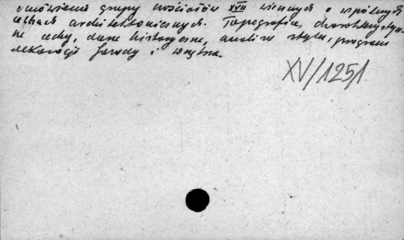 Omówienie grupy kościołów XVII wiecznych o wspólnych
cechach architektonicznych. Topografia, charakterystycz-
ne cechy, dane historyczne, analiza stylu, program
dekoracji fasady i wnętrza.
XV/1251